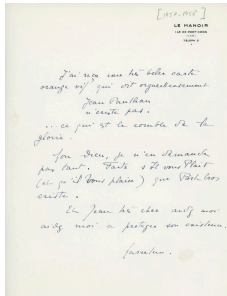 [1957-1958]
LE MANOIR
ILE DE PORT-CROS
(VAR)
TÉLÉPH 2
J'ai reçu une très belle carte
orange vif qui dit orgueilleusement
Jean Paulhan
n'existe pas.
... ce qui est le comble de la
gloire.
Mon Dieu, je n'en demande
pas tant. Faites s'il vous Plait
(et qu'il Vous plaise) que Port-Cros
existe.
Et Jean très cher
moi à protéger son existence.